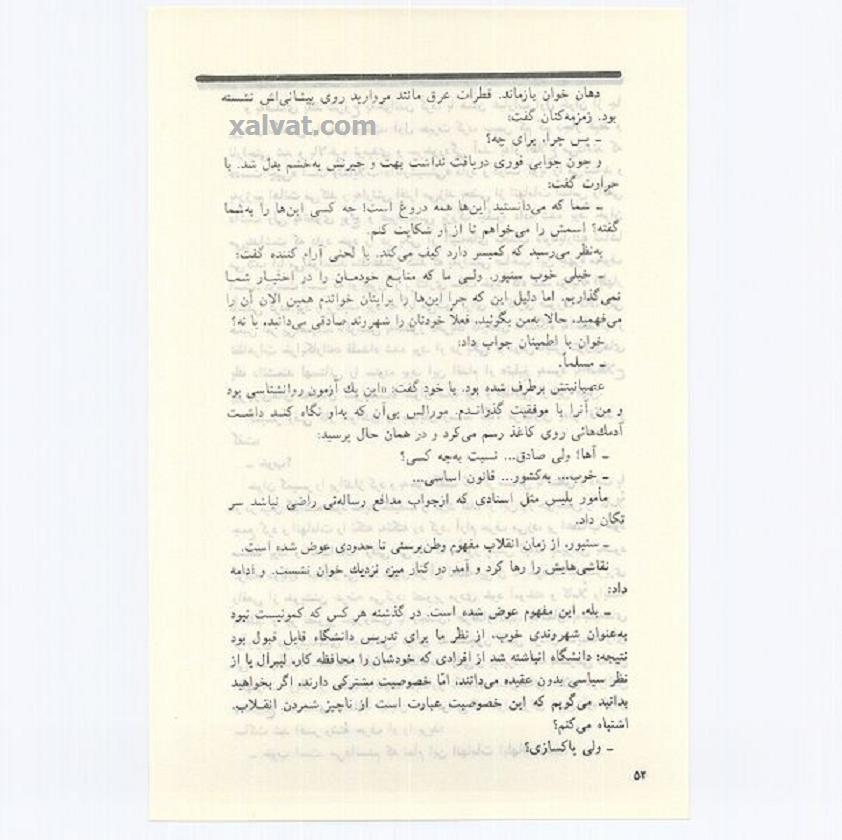 دهان خوان بازماند. قطرات عرق مانند مروارید روی پیشانی‌اش نشسته
بود. زمزمه‌کنان گفت:
xalvat.com
ـ پس چرا، برای چه؟
و چون جوابی فوری دریافت نداشت بهت و حیرتش به‌خشم بدل شد. با
حرارت گفت:
ـ شما که می‌دانستید این‌ها همه دروغ است! چه کسی این‌ها را به‌شما
گفته؟ اسمش را می‌خواهم تا از او شکایت کنم.
به‌نظر می‌رسید که کمیسر دارد کیف می‌کند. با لحنی آرام کننده گفت:
ـ خیلی خوب سینیور. ولـی ما که منابـع خودمـان را در اختیـار شمـا
نمی‌گذاریم. اما دلیل این که چرا این‌ها را برایتان خواندم همین الان آن را
می‌فهمید. حالا به‌من بگوئید، فعلاً خودتان را شهروند صادقی می‌دانید، یا نه؟
خوان با اطمینان جواب داد:
ـ مسلماً.
عصبانیتش برطرف شده بود. با خود گفت: «این یك آزمون روانشناسی بود
و من آنرا با موفقیت گذرانـدم. مورالس بی‌آن که به‌او نگاه کنـد داشـت
آدمك‌هائی روی کاغذ رسم می‌کرد و در همان حال پرسید:
ـ آها! ولی صادق... نسبت به‌چه کسی؟
ـ خوب... به‌کشور... قانون اساسی...
مأمور پلیس مثل استادی که ازجواب مدافع رساله‌ئی راضی نباشد سر
تکان داد.
ـ سنیور، از زمان انقلاب مفهوم وطن‌پرستی تا حدودی عوض شده است.
نقاشی‌هایش را رها کرد و آمد در کنار میز، نزدیك خوان نشست. و ادامه
داد:
ـ بله، این مفهوم عوض شده است. در گذشته هر کس که کمونیست نبود
به‌عنوان شهروندی خوب، از نظر ما برای تدریس دانشگاه قابل قبول بود
نتیجه: دانشگاه انباشته شد از افرادی که خودشان را محافظه کار، لیبرال یا از
نظر سیاسی بدون عقیده می‌دانند، امّا خصوصیت مشترکی دارند، اگر بخواهید
بدانید می‌گویم که این خصوصیت عبارت است از ناچیز شمردن انقـلاب.
اشتباه می‌کنم؟
ـ ولی پاکسازی؟
۵۲